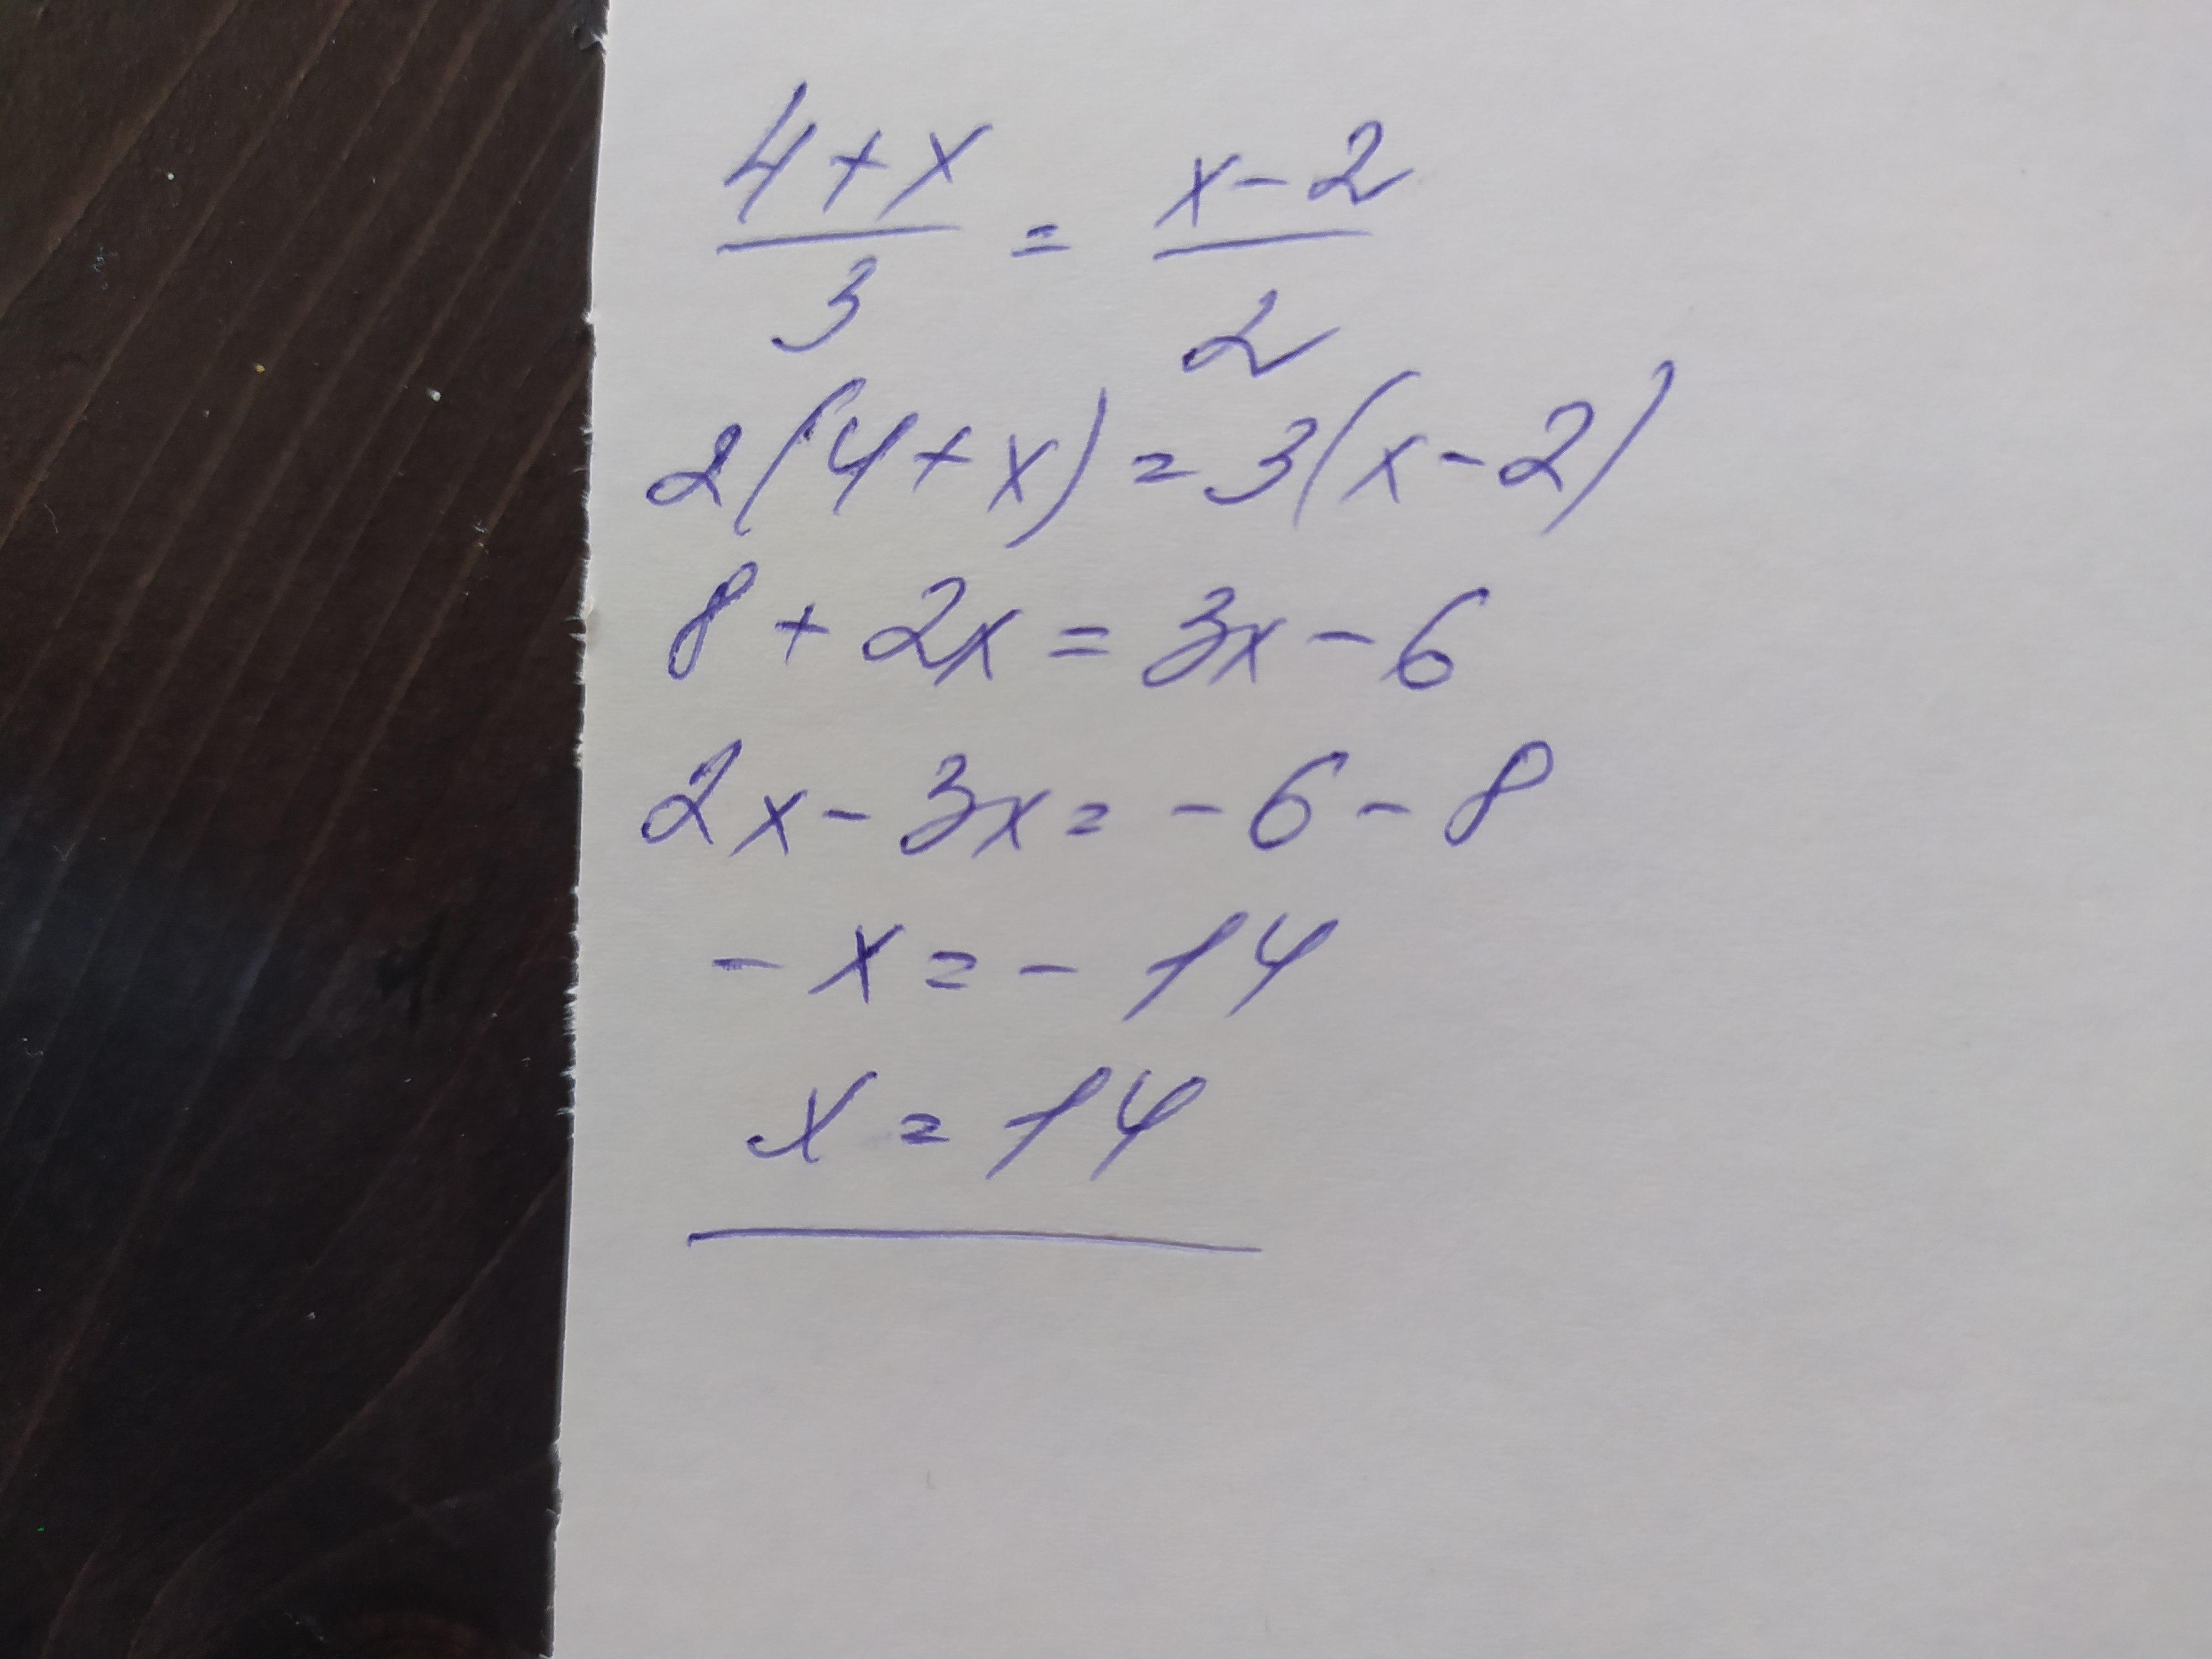 4+x/3 = x-2/2
2(4+x)=3(x-2)
8+2x=3x-6
2x-3x=-6-8
-x=-14
x=14